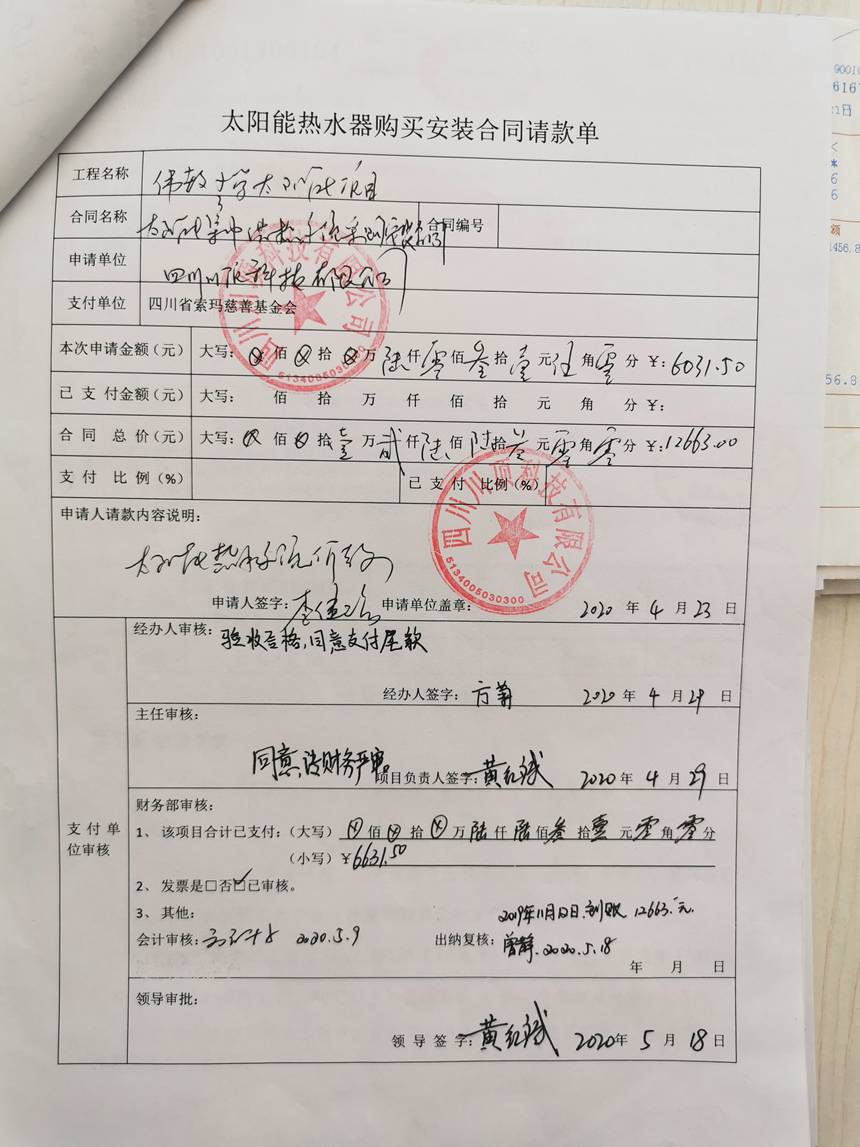 太阳能热水器购买安装合同请款单
工程名称 小学太阳能项目
合同名称 合同编号
申请单位 四川川 科技有限公司
支付单位 四川省索玛慈善基金会
本次申请金额（元） 大写：⊗佰⊗拾⊗万陆仟零佰叁拾壹元伍角零分 ￥：6031.50
已支付金额（元） 大写： 佰 拾 万 仟 佰 拾 元 角 分 ￥：
合同总价（元） 大写：⊗佰⊗拾壹万贰仟陆佰陆拾叁元零角零分 ￥：12663.00
支付比例（%） 已支付比例（%）
申请人请款内容说明：
申请人签字： 申请单位盖章： 2020年4月23日
四川川 科技有限公司
5134005030300
四川川 科技有限公司
5134005030300
支付单位审核
经办人审核：验收合格，同意支付尾款
经办人签字： 2020年4月29日
主任审核：
同意，请财务严审。 项目负责人签字：黄红斌 2020年4月29日
财务部审核：
1、该项目合计已支付：（大写）⊗佰⊗拾⊗万陆仟陆佰叁拾壹元零角零分
（小写）￥6631.50
2、发票是□否☑已审核。
3、其他： 2019年11月12日 到账 12663.元.
会计审核： 2020.5.9 出纳复核：曾静.2020.5.18
年 月 日
领导审批：
领导签字：黄红斌 2020年5月18日